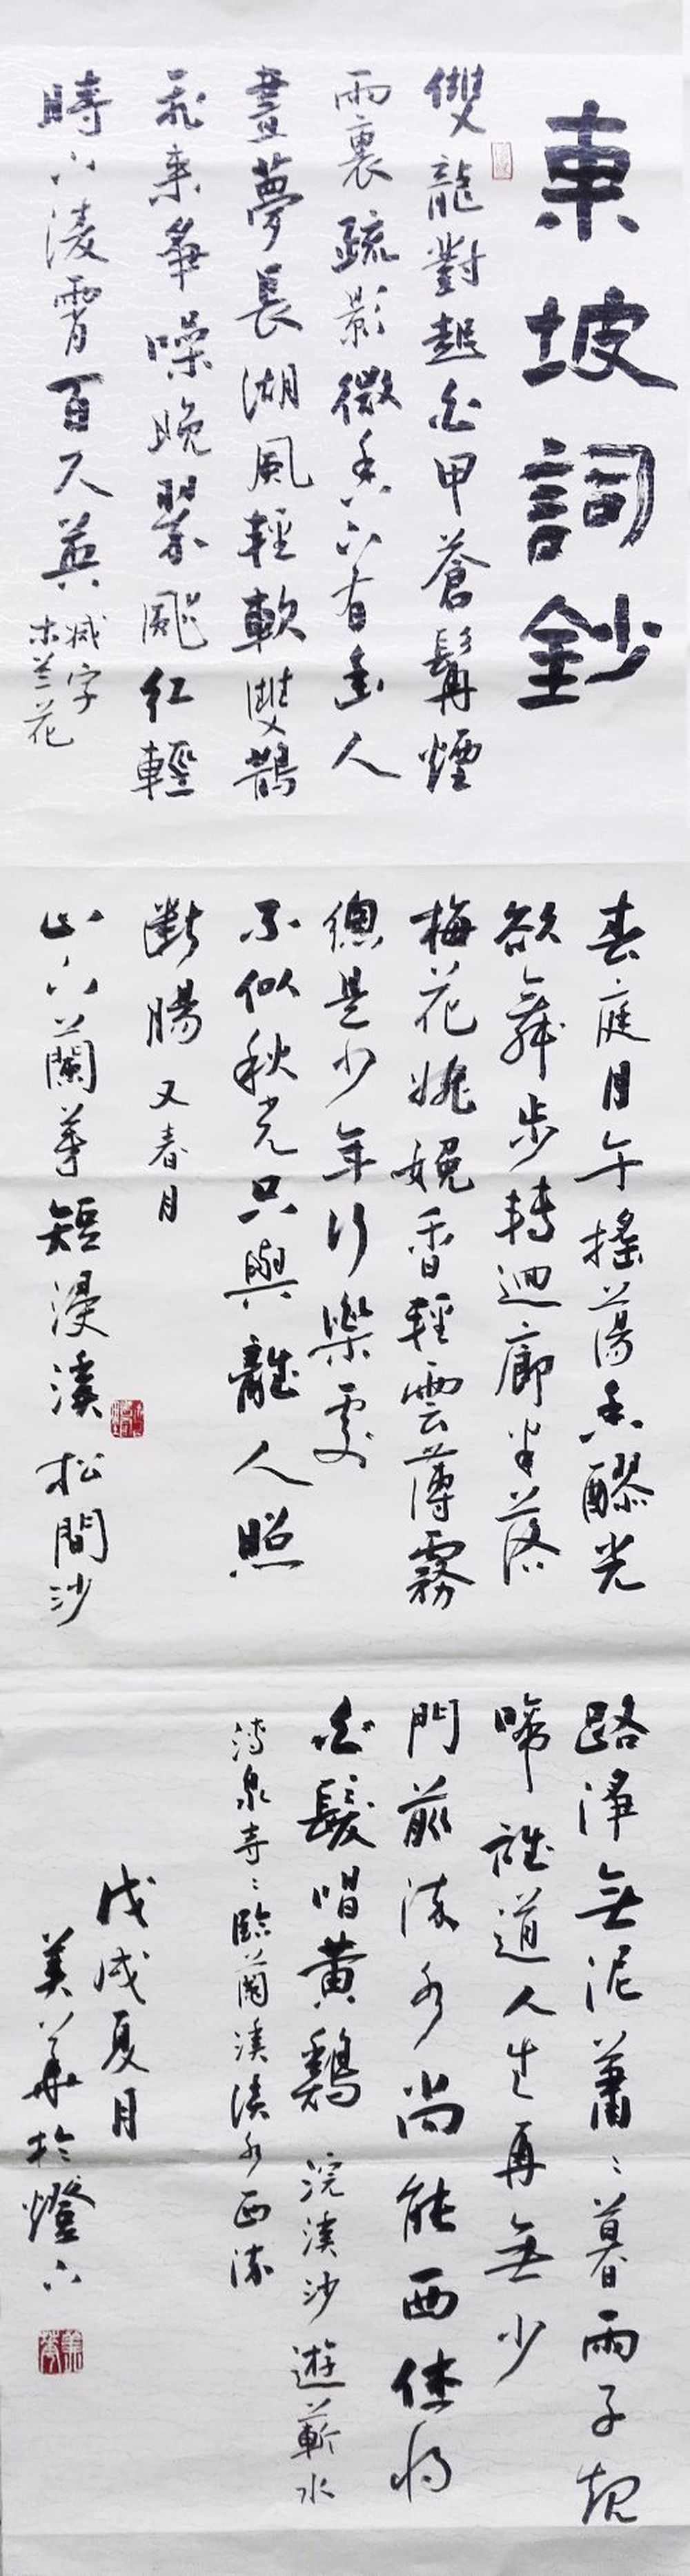 東坡詞鈔
雙龍對起白甲蒼髯煙
雨裏疏影微香下有幽人
晝夢長湖風輕軟雙鵲
飛來爭噪晚翠颭紅輕
時下淩霄百尺英 减字
木兰花
春庭月午搖蕩香醪光
欲舞步轉迴廊半落
梅花婉娩香輕雲薄霧
總是少年行樂處
不似秋光只與離人照
斷腸 又春月
山下蘭芽短浸溪 松間沙
路淨無泥蕭〻暮雨子規
啼誰道人生再無少
門前流水尚能西休將
白髮唱黃鷄 浣溪沙 遊蘄水
清泉寺〻臨蘭溪溪水西流
戊戌夏月
美華於燈下
美華